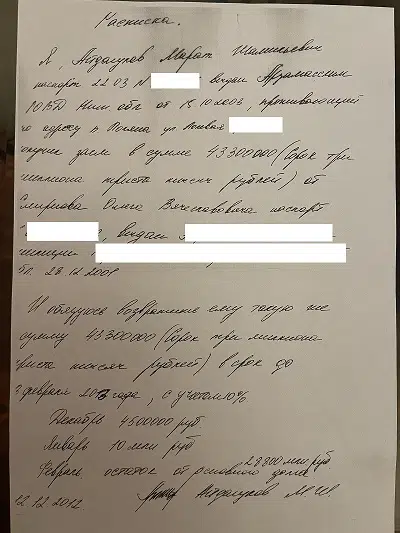 Расписка.
Я, Абдалугов Марат Шамильевич
паспорт 22 03 N выдан Арзамасским
УВД Ниж. обл от 15.10.2003, проживающий
по адресу ул
займ в сумме 43300000 (Сорок три
миллиона триста тысяч рублей) от
Олега Вячеславовича паспорт
, выдан
28.12.2001
И обязуюсь возвратить ему такую же
сумму 43300000 (Сорок три миллиона
триста тысяч рублей) в срок до
февраля 2013 года, с учетом 10%
Декабрь 4500000 руб
Январь 10 млн руб
Февраль остаток от основного долга 28800 млн руб
12.12.2012 М.Ш.